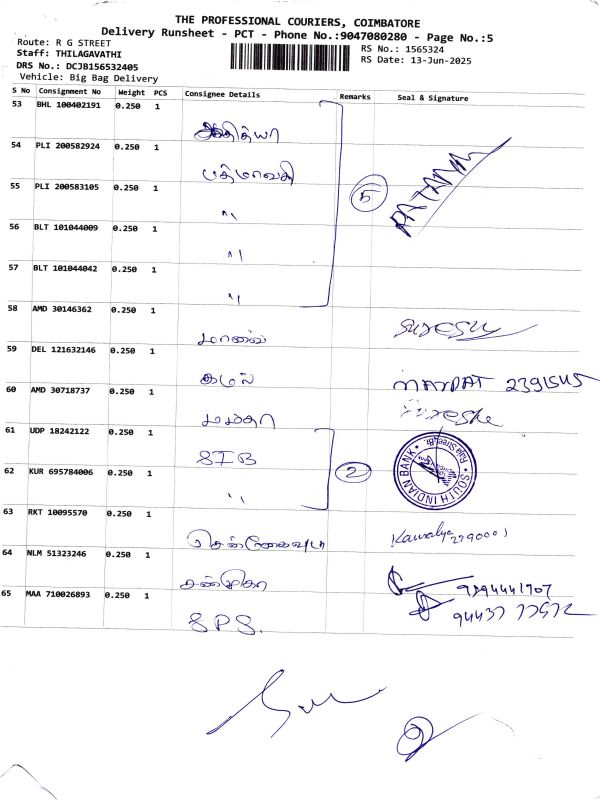 THE PROFESSIONAL COURIERS, COIMBATORE
Delivery Runsheet - PCT - Phone No.:9047080280 - Page No.:5
Route: R G STREET
RS No.: 1565324
Staff: THILAGAVATHI
RS Date: 13-Jun-2025
DRS No.: DCJB156532405
Vehicle: Big Bag Delivery
S No Consignment No Weight PCS Consignee Details Remarks Seal & Signature
53 BHL 100402191 0.250 1
54 PLI 200582924 0.250 1 பத்மாவதி
5 RATANA
55 PLI 200583105 0.250 1 "
56 BLT 101044009 0.250 1 "
57 BLT 101044042 0.250 1 "
58 AMD 30146362 0.250 1 SURESH
59 DEL 121632146 0.250 1 கமல்
60 AMD 30718737 0.250 1 Suresh
61 UDP 18242122 0.250 1 SIB
2 SOUTH INDIAN BANK
62 KUR 695784006 0.250 1 "
63 RKT 10095570 0.250 1 Kawsalya
64 NLM 51323246 0.250 1
65 MAA 710026893 0.250 1 SPS.